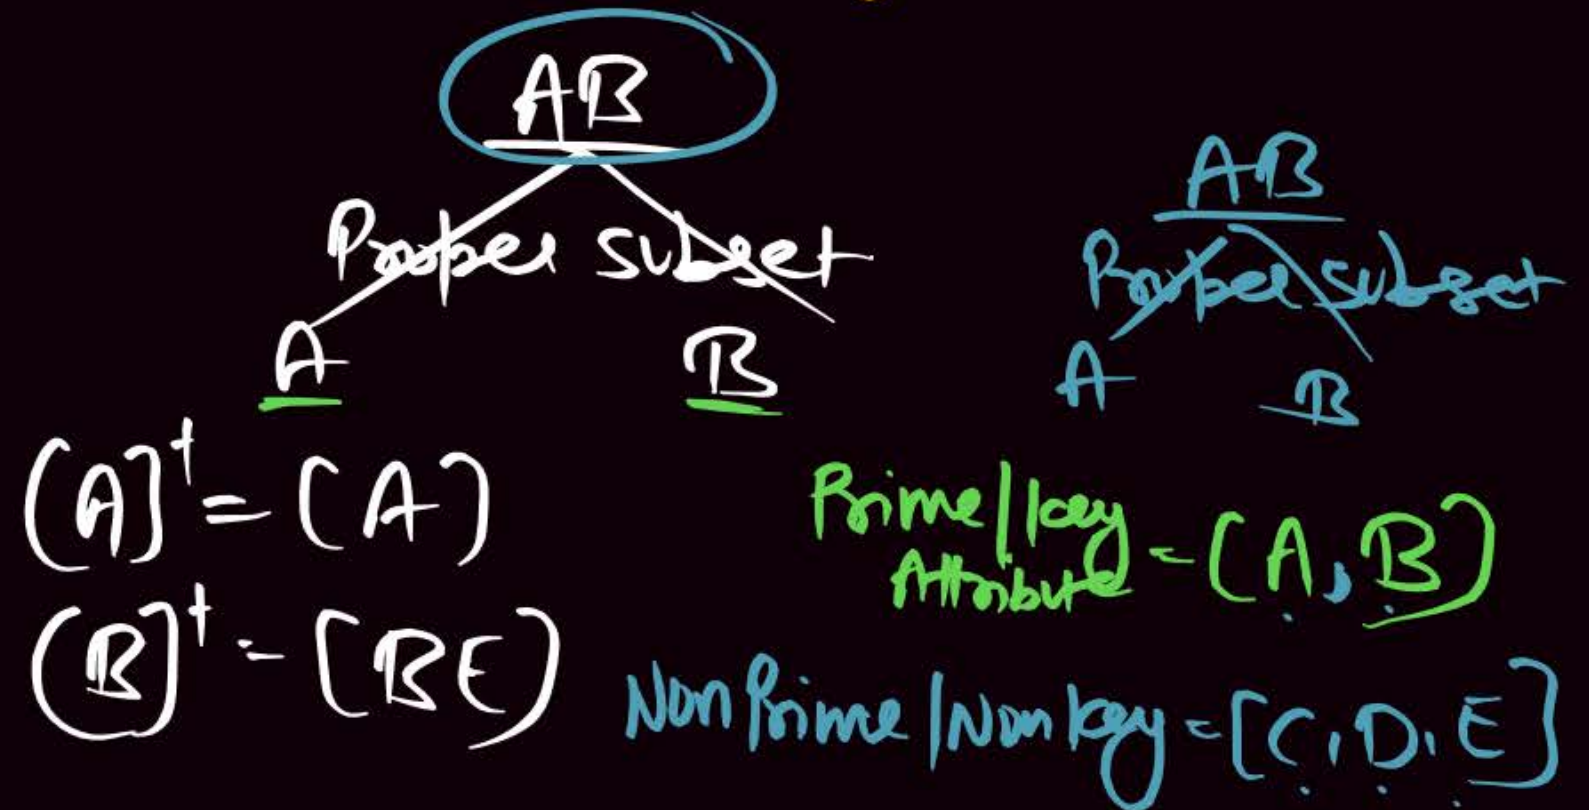 AB
Proper subset
A B
[A]⁺ = (A)
[B]⁺ = [BE)
AB
Proper subset
A B
Prime/key
Attribute = (A, B)
Non Prime/Non key = [C, D, E]